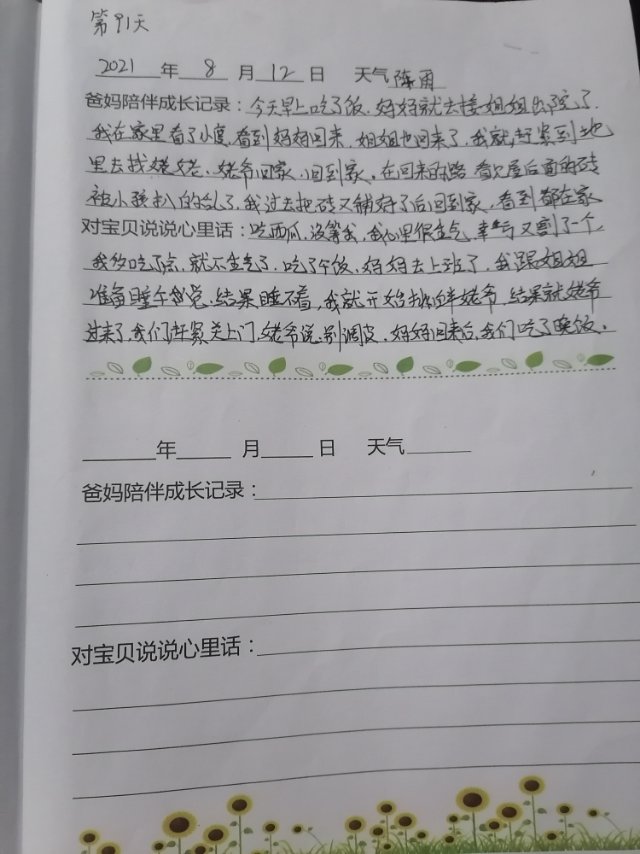 第91天
2021 年 8 月 12 日 天气 阵雨
爸妈陪伴成长记录：今天早上吃了饭，妈妈就去接姐姐出院了，
我在家里看了小度，看到妈妈回来，姐姐也回来了，我就赶紧到地
里去找姥姥、姥爷回家，回到家，在回来的路，看屋后面的砖
被小孩扒的乱了，我过去把砖又铺好了后回到家，看到都在家
对宝贝说说心里话：吃西瓜，没等我，我心里很生气，幸亏又剩了一个，
我多吃了点，就不生气了，吃了午饭，妈妈去上班了，我跟姐姐
准备睡午觉，结果睡不着，我就开始拌姥爷，结果就姥爷
过来了，我们赶紧关上门，姥爷说，别调皮，妈妈回来后，我们吃了晚饭。
年 月 日 天气
爸妈陪伴成长记录：
对宝贝说说心里话：